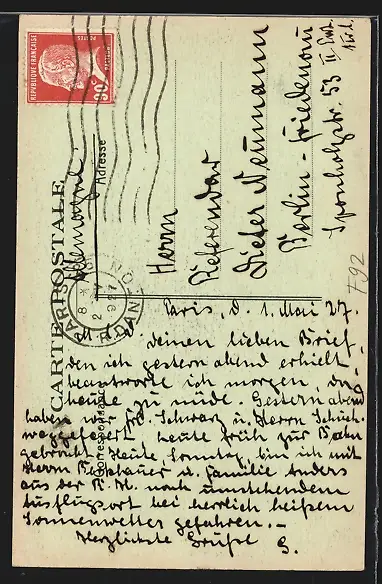 CARTE POSTALE
Correspondance
Adresse
REPUBLIQUE FRANÇAISE
POSTES
90c
Allemagne.
Herrn
Referendar
Dieter Neumann
Berlin-Friedenau
Sponholzstr. 53
PARIS
1927
F92
Paris, d. 1. Mai 27.
Deinen lieben Brief,
den ich gestern abend erhielt,
beantworte ich morgen, da
heute zu müde. Gestern abend
haben wir Frl. Schwarz u. Herrn
weggefeiert heute früh zur Bahn
gebracht. Heute, Sonntag, bin ich mit
Herrn u. Familie Anders
aus der nach umstehendem
Ausflugsort bei herrlich heißem
Sonnenwetter gefahren. –
Herzlichste Grüße G.